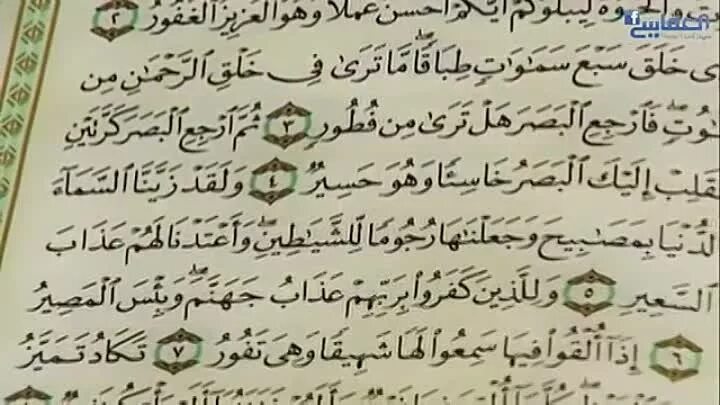 لِيَبْلُوَكُمْ أَيُّكُمْ أَحْسَنُ عَمَلًا وَهُوَ ٱلْعَزِيزُ ٱلْغَفُورُ ٢
خَلَقَ سَبْعَ سَمَٰوَٰتٍ طِبَاقًا مَّا تَرَىٰ فِى خَلْقِ ٱلرَّحْمَٰنِ مِن
فَٱرْجِعِ ٱلْبَصَرَ هَلْ تَرَىٰ مِن فُطُورٍ ٣ ثُمَّ ٱرْجِعِ ٱلْبَصَرَ كَرَّتَيْنِ
إِلَيْكَ ٱلْبَصَرُ خَاسِئًا وَهُوَ حَسِيرٌ ٤ وَلَقَدْ زَيَّنَّا ٱلسَّمَآءَ
ٱلدُّنْيَا بِمَصَٰبِيحَ وَجَعَلْنَٰهَا رُجُومًا لِّلشَّيَٰطِينِ وَأَعْتَدْنَا لَهُمْ عَذَابَ
ٱلسَّعِيرِ ٥ وَلِلَّذِينَ كَفَرُوا۟ بِرَبِّهِمْ عَذَابُ جَهَنَّمَ وَبِئْسَ ٱلْمَصِيرُ
٦ إِذَآ أُلْقُوا۟ فِيهَا سَمِعُوا۟ لَهَا شَهِيقًا وَهِىَ تَفُورُ ٧ تَكَادُ تَمَيَّزُ